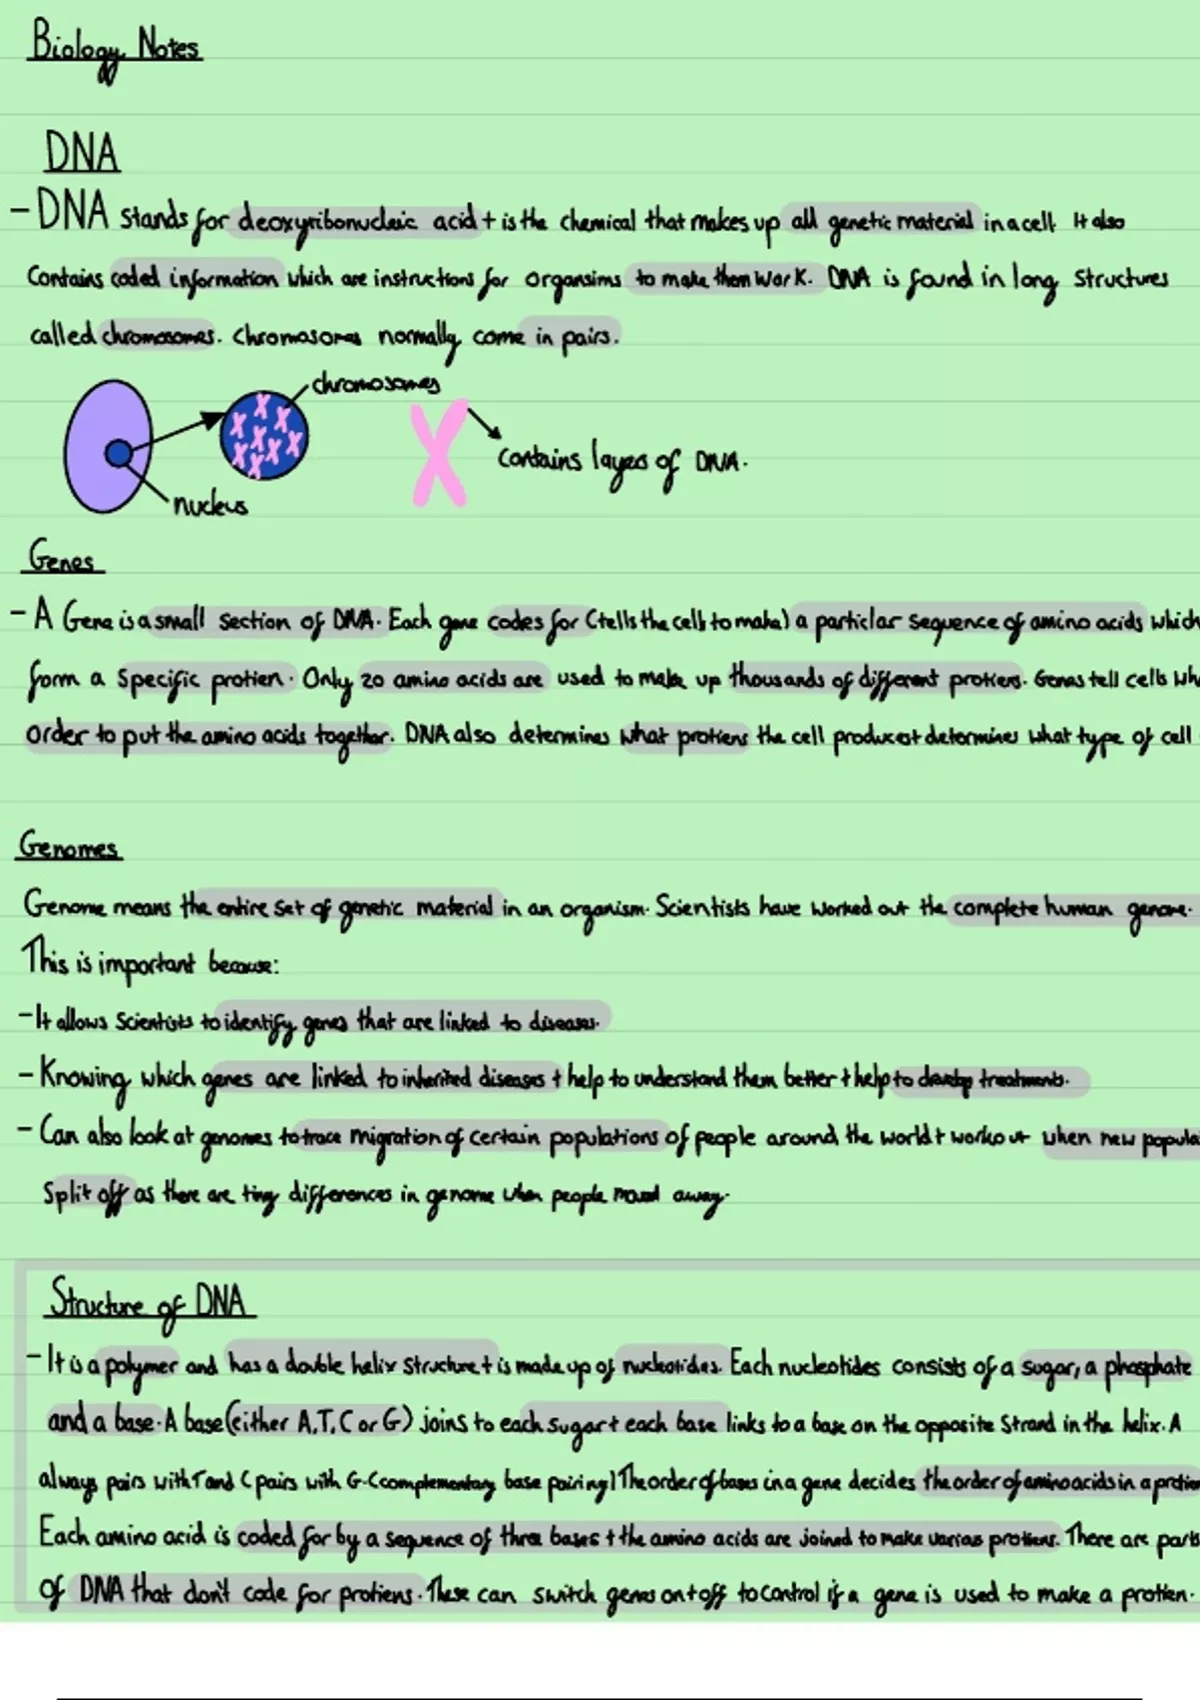 Biology Notes
DNA
- DNA stands for deoxyribonucleic acid + is the chemical that makes up all genetic material in a cell. It also
contains coded information which are instructions for organsims to make them work. DNA is found in long structures
called chromosomes. Chromosomes normally come in pairs.
chromosomes
contains layers of DNA.
nucleus
Genes
- A Gene is a small section of DNA. Each gene codes for (tells the cells to make) a particlar sequence of amino acids which
form a specific protien. Only 20 amino acids are used to make up thousands of different protiens. Genes tell cells wh
order to put the amino acids together. DNA also determines what protiens the cell produces + determines what type of cell
Genomes
Genome means the entire set of genetic material in an organism. Scientists have worked out the complete human genome.
This is important because:
- It allows scientists to identify genes that are linked to diseases.
- Knowing which genes are linked to inherited diseases + help to understand them better + help to develop treatments.
- Can also look at genomes to trace migration of certain populations of people around the world + work out when new popula
split off as there are tiny differences in genome when people moved away.
Structure of DNA
- It is a polymer and has a double helix structure + is made up of nucleotides. Each nucleotides consists of a sugar, a phosphate
and a base. A base (either A, T, C or G) joins to each sugar + each base links to a base on the opposite strand in the helix. A
always pairs with T and C pairs with G - (complementary base pairing) The order of bases in a gene decides the order of amino acids in a protien
Each amino acid is coded for by a sequence of three bases + the amino acids are joined to make various protiens. There are parts
of DNA that don't code for protiens. These can switch genes on + off to control if a gene is used to make a protien.